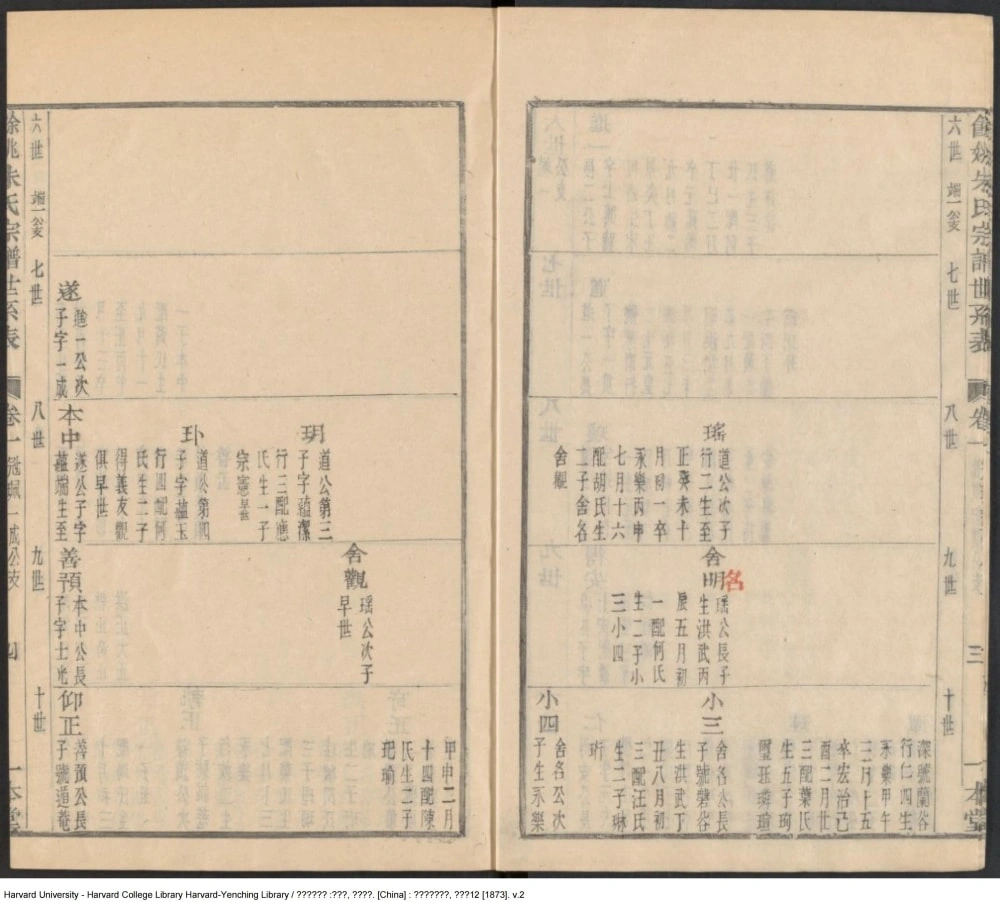 餘姚朱氏宗譜世系表
卷一
三
一本堂
六世
端一公支
七世
八世
九世
十世
瑤
道公次子
行二生至
正癸未十
月初一卒
永樂丙申
七月十六
配胡氏生
二子舍名
舍觀
舍明
名
瑤公長子
生洪武丙
辰五月初
一配何氏
生二子小
三小四
深號蘭谷
行仁四生
永樂甲午
三月十五
卒宏治己
酉二月廿
三配葉氏
生五子珣
璽珏璘瑄
小三
舍名公長
子號磬谷
生洪武丁
丑八月初
三配汪氏
生二子琳
珩
小四
舍名公次
子生永樂
甲申二月
十四配陳
氏生二子
玭瑜
玥
道公第三
子字蘊潔
行三配應
氏生一子
宗憲早
世
卟
道公第四
子字蘊玉
行四配何
氏生二子
得義友觀
俱早世
舍觀
瑤公次子
早世
遂
道一公次
子字一成
本中
遂公子字
蘊端生至
善預
本中公長
子字士光
仰正
善預公長
子號遁菴
六世
端一公支
七世
八世
九世
十世
餘姚朱氏宗譜世系表
卷一
冠珮
一成公支
四
一本堂